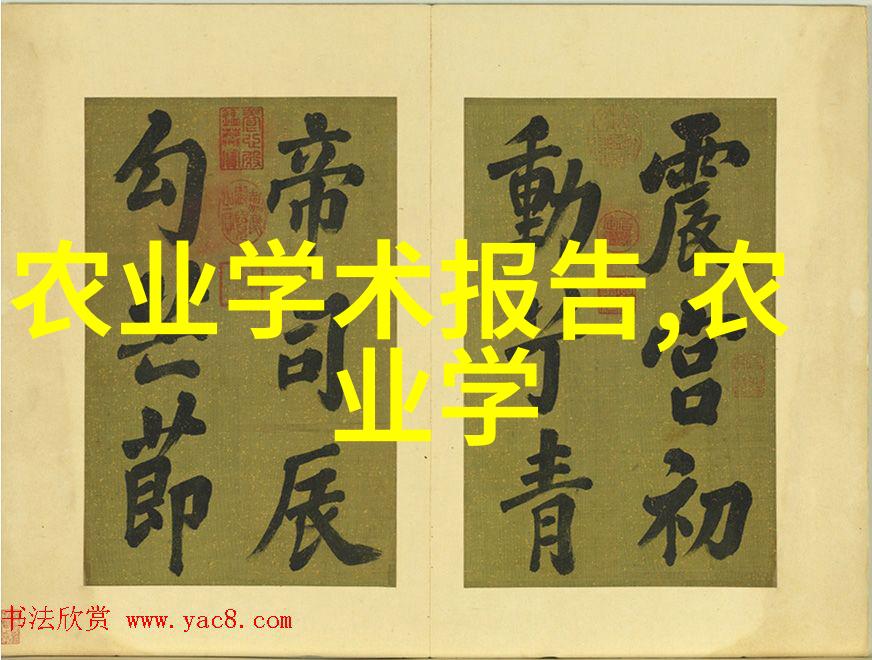 震宫初
動芳青
帝司辰
勾芒節
农业学术报告,农
业学
书法欣赏 www.yac8.com